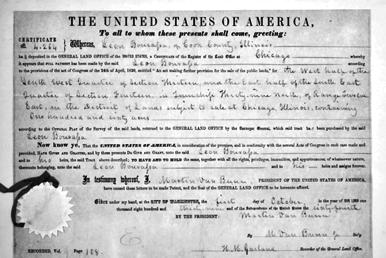 THE UNITED STATES OF AMERICA,
To all to whom these presents shall come, greeting:
CERTIFICATE
No. 4,264
Whereas, Leon Bourassa, of Cook County, Illinois
ha deposited in the GENERAL LAND OFFICE of the UNITED STATES, a Certificate of the Register of the Land Office at Chicago whereby
it appears that FULL PAYMENT has been made by the said Leon Bourassa according to
the provisions of the act of Congress of the 24th of April, 1820, entitled "An act making further provision for the sale of the public lands," for the West half of the
South West Quarter of Section Thirteen, and the East half of the South East
Quarter of Section Fourteen, in Township Thirty-nine North, of Range Twelve
East, in the District of Lands subject to sale at Chicago, Illinois, containing
One hundred and sixty acres
according to the Official Plat of the Survey of the said lands, returned to the GENERAL LAND OFFICE by the Surveyor General, which said tract has been purchased by the said
Leon Bourassa
Now know ye, That the UNITED STATES OF AMERICA, in consideration of the premises, and in conformity with the several Acts of Congress in such case made and
provided, HAVE GIVEN AND GRANTED, and by these presents DO GIVE AND GRANT, unto the said Leon Bourassa
and to his heirs, the said Tract above described; TO HAVE AND TO HOLD the same, together with all the rights, privileges, immunities, and appurtenances, of whatsoever nature,
thereunto belonging, unto the said Leon Bourassa and to his heirs and assigns forever.
In testimony whereof, I, Martin Van Buren, PRESIDENT OF THE UNITED STATES OF AMERICA,
have caused these letters to be made Patent, and the Seal of the GENERAL LAND OFFICE to be hereunto affixed.
Given under my hand, at the CITY OF WASHINGTON, the first day of October, in the year of our Lord one
thousand eight hundred and thirty-nine and of the Independence of the United States the sixty-fourth
BY THE PRESIDENT: Martin Van Buren
By M. Van Buren Jr.
H. M. Garland Recorder of the General Land Office.
RECORDED, Vol. Page 108.